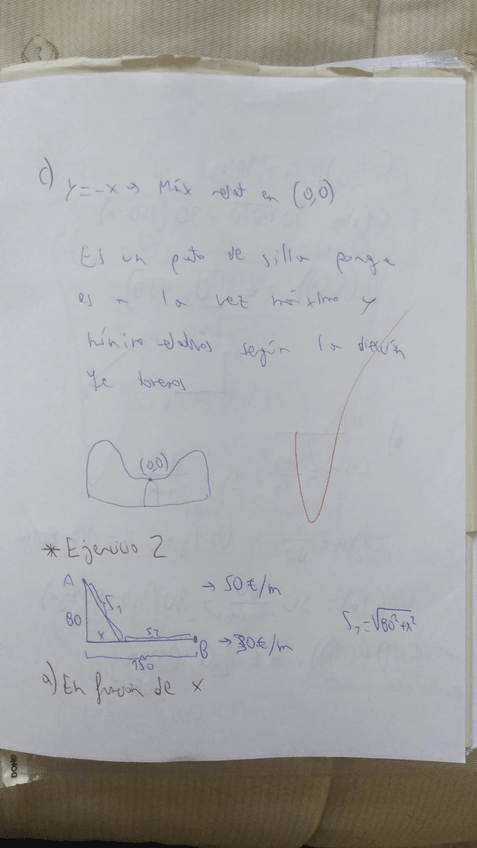 c) y = -x → Máx relat en (0,0)
Es un pato de silla porque
es a la vez máximo y
mínimo relativos según la dirección
(0,0)
* Ejercicio 2
A
S₁
80
x
S₂
B
150
→ 50€/m
→ 30€/m
S₁=√80²+x²
a) En función de x